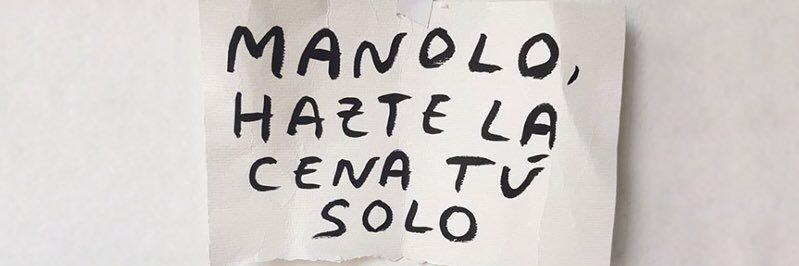 MANOLO,
HAZTE LA
CENA TÚ
SOLO